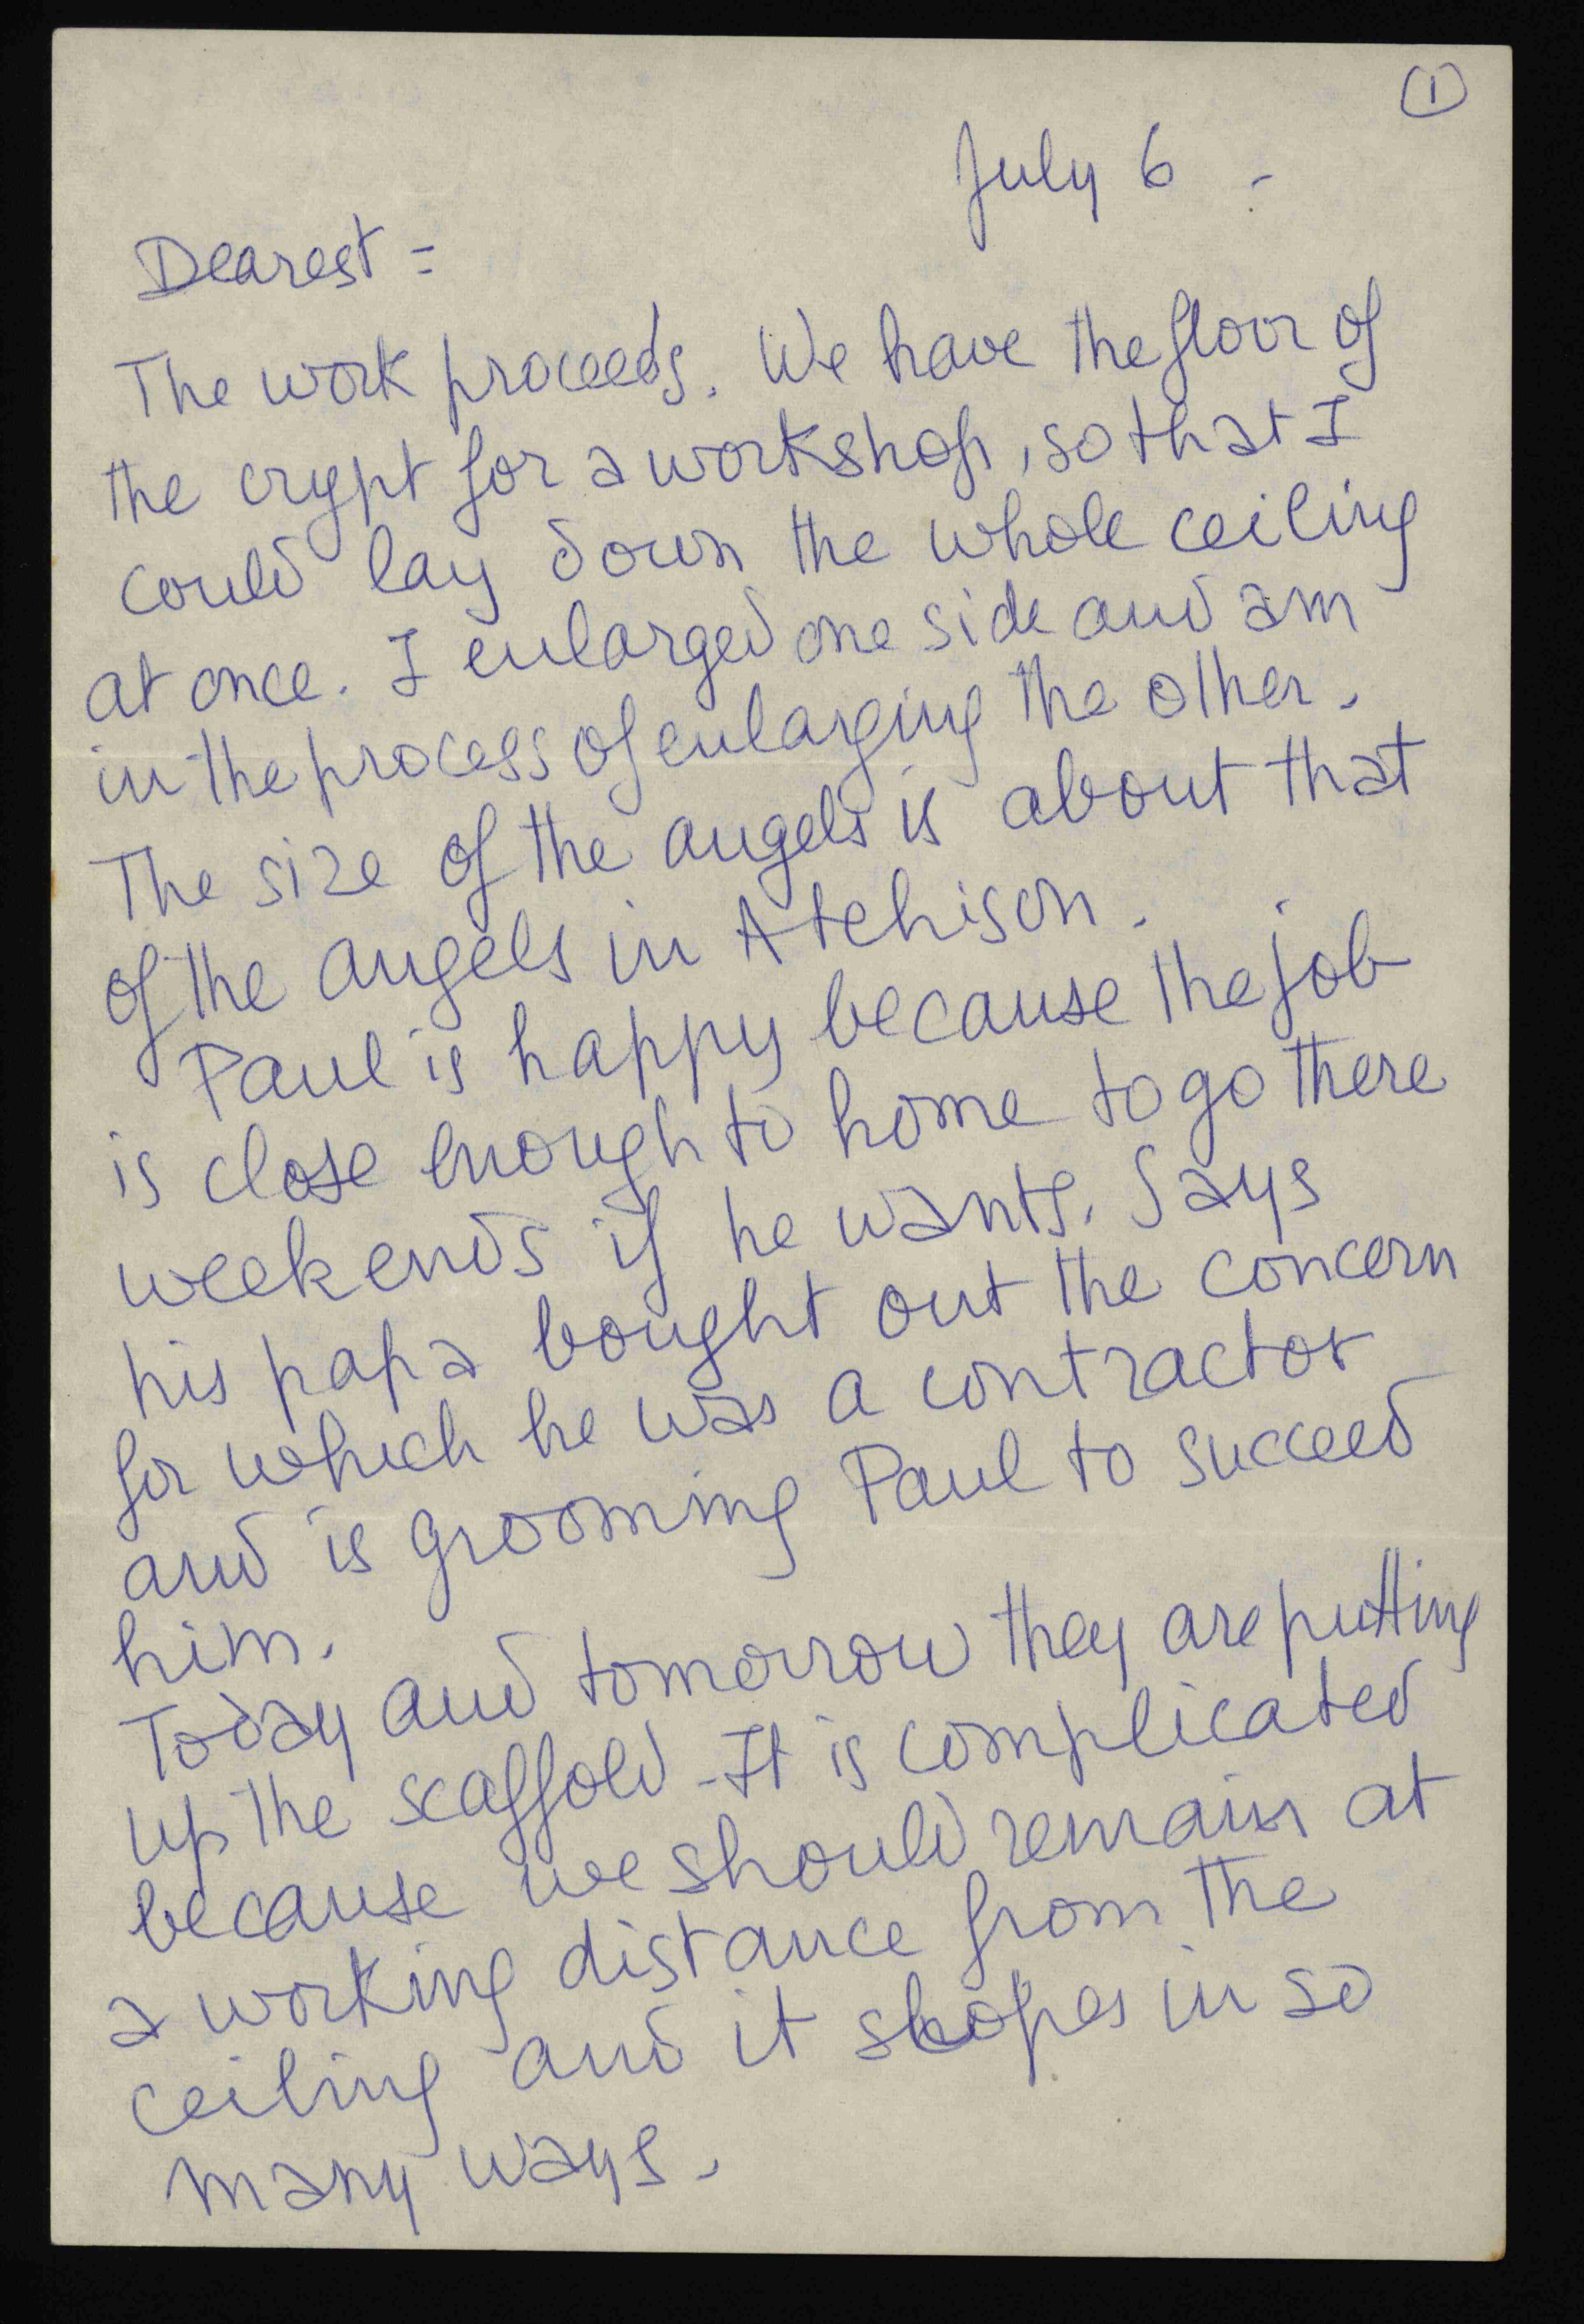 ①
July 6 -
Dearest =
The work proceeds. We have the floor of
the crypt for a workshop, so that I
could lay down the whole ceiling
at once. I enlarged one side and am
in the process of enlarging the other.
The size of the angels is about that
of the angels in Atchison.
Paul is happy because the job
is close enough to home to go there
weekends if he wants. Says
his papa bought out the concern
for which he was a contractor
and is grooming Paul to succeed
him.
Today and tomorrow they are putting
up the scaffold - It is complicated
because we should remain at
a working distance from the
ceiling and it slopes in so
many ways.